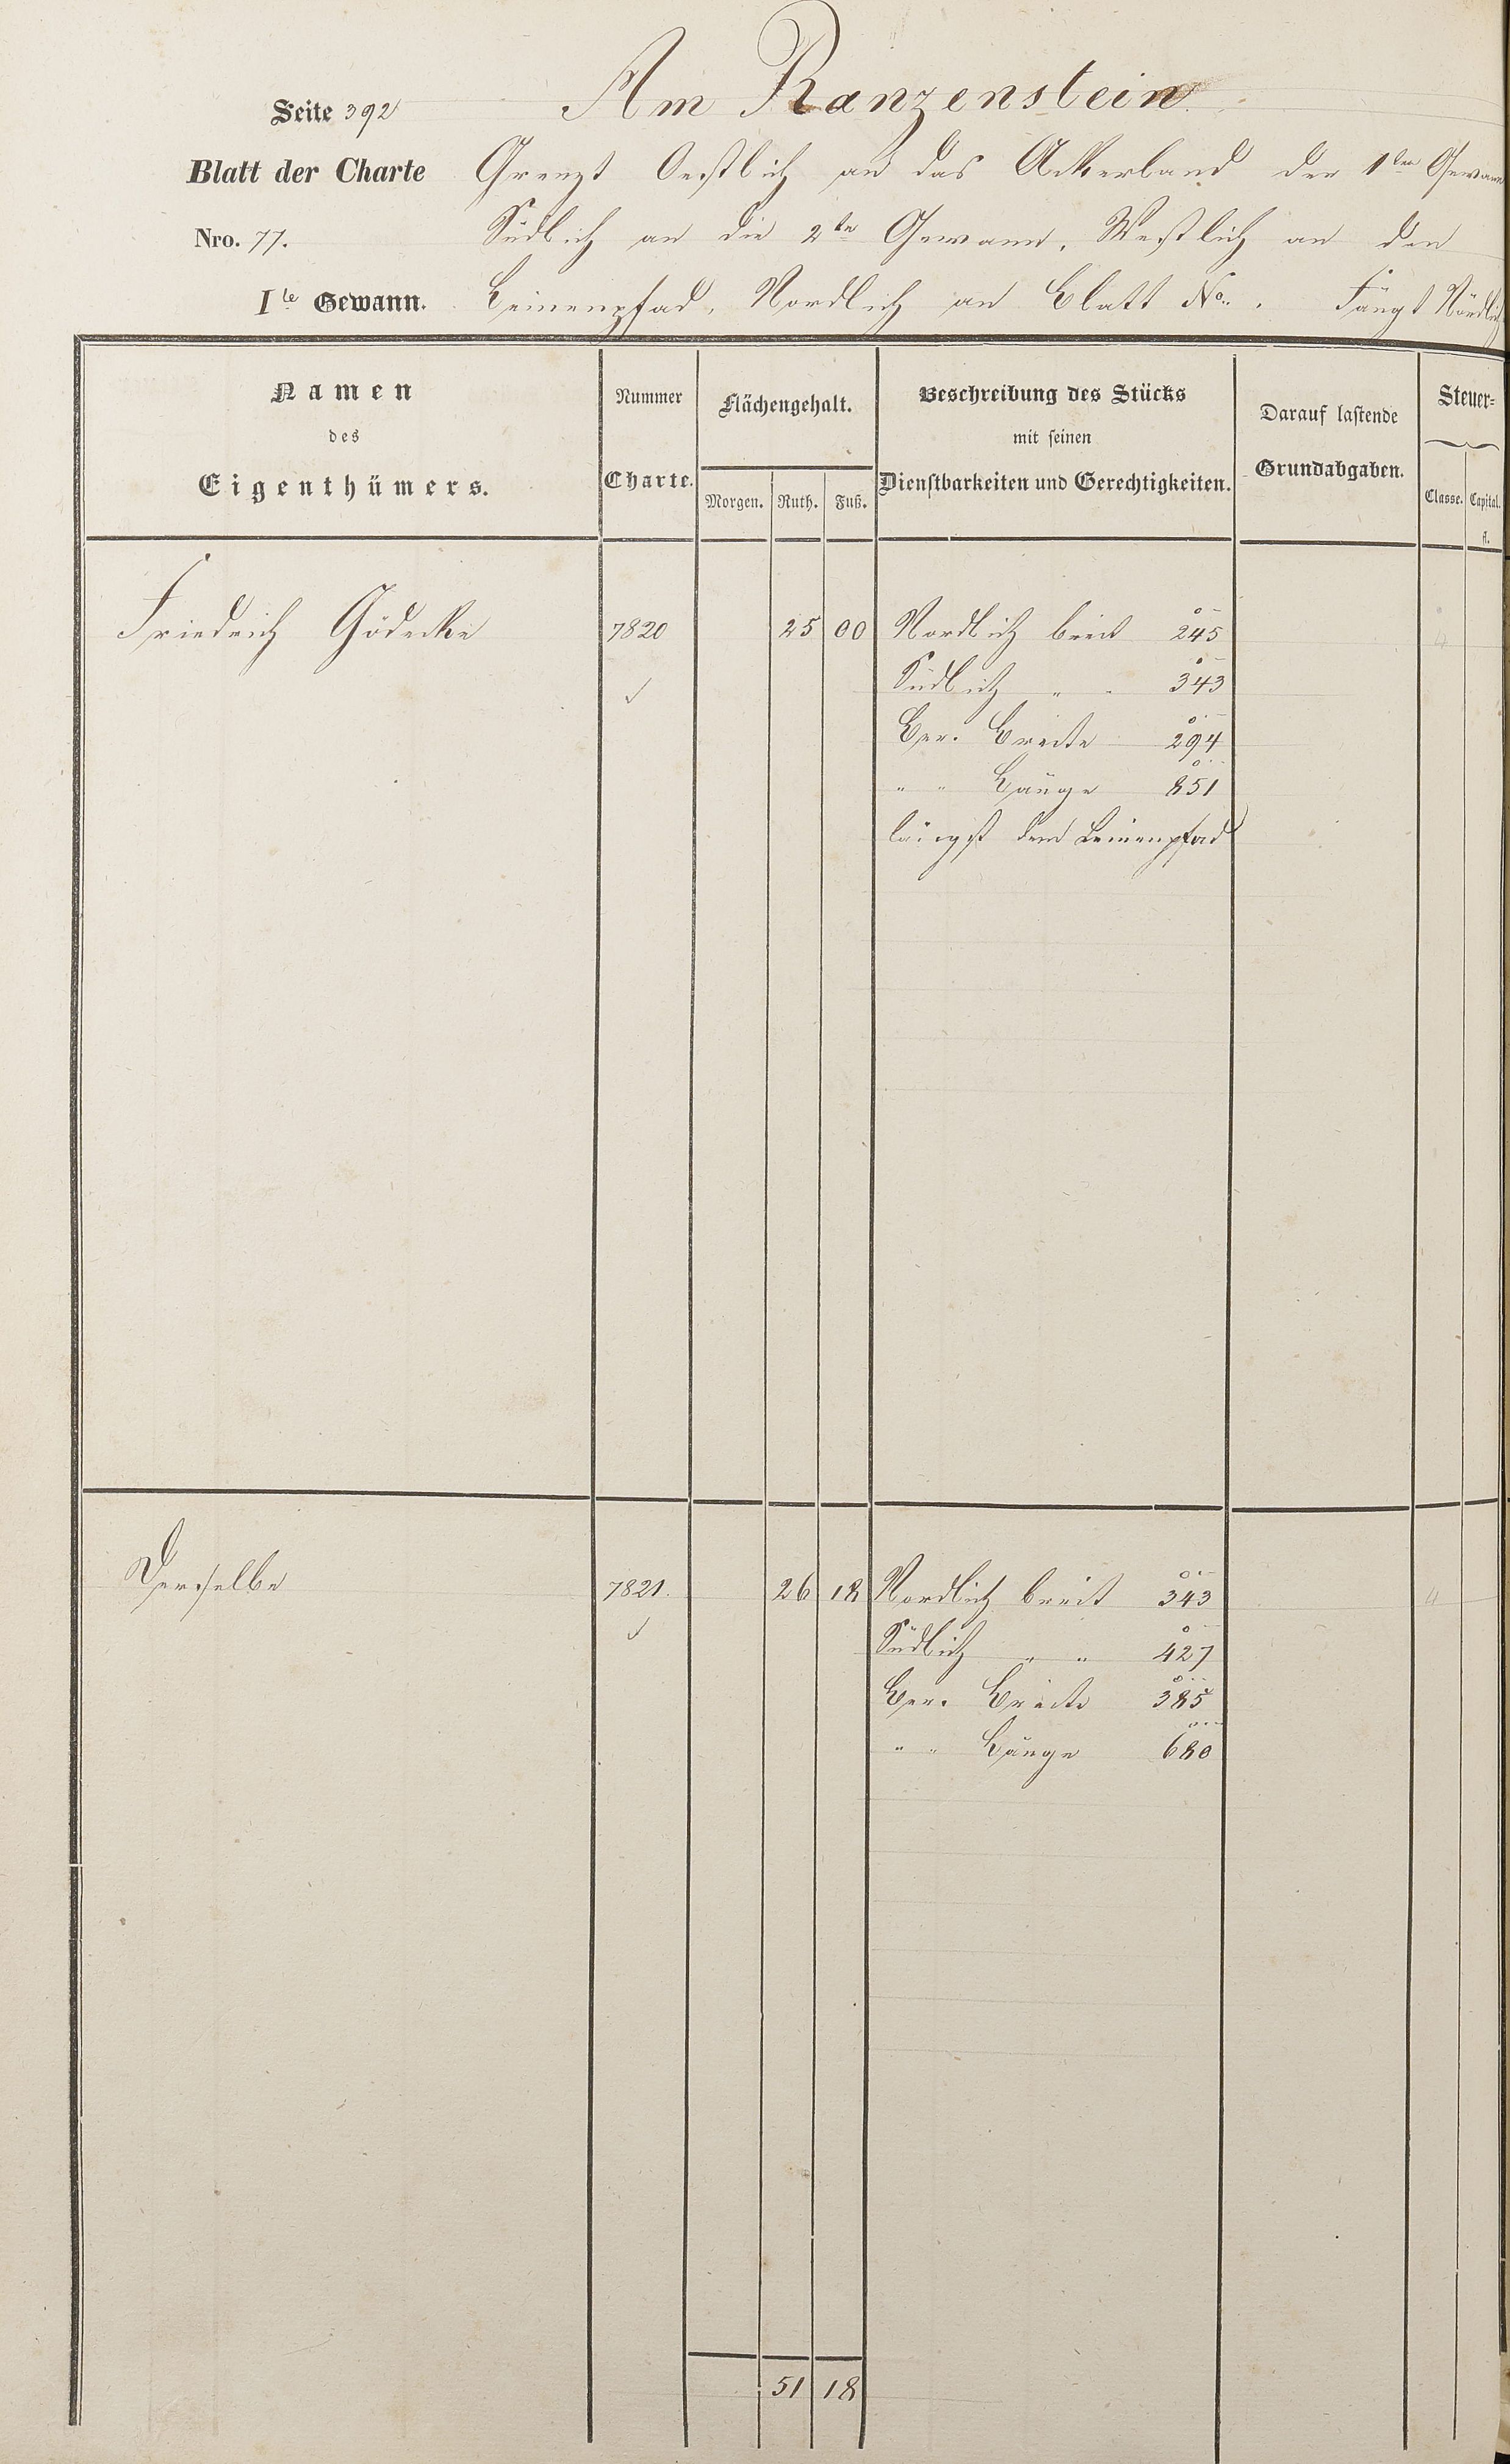 Seite 392
Am Ranzenstein
Blatt der Charte
Grenzt Oestlich an das Ackerland der 1ten Gewann
Nro. 77.
Südlich an die 2te Gewann, Westlich an den
Ite Gewann.
Leinenpfad, Nordlich an Blatt No. . Fängt Nördlich
Namen
des
Eigenthümers.
Nummer
Charte.
Flächengehalt.
Morgen. Ruth. Fuß.
Beschreibung des Stücks
mit seinen
Dienstbarkeiten und Gerechtigkeiten.
Darauf lastende
Grundabgaben.
Steuer-
Classe. Capital.
fl.
Friedrich Gödecke 7820 25 00 Nordlich breit 245 4
Südlich " " 343
Ber. Breite 294
" " Länge 851
längst dem Leinenpfad
Derselbe 7821. 26 18 Nordlich breit 343 4
Südlich " " 427
Ber. Breite 385
" " Länge 680
51 18